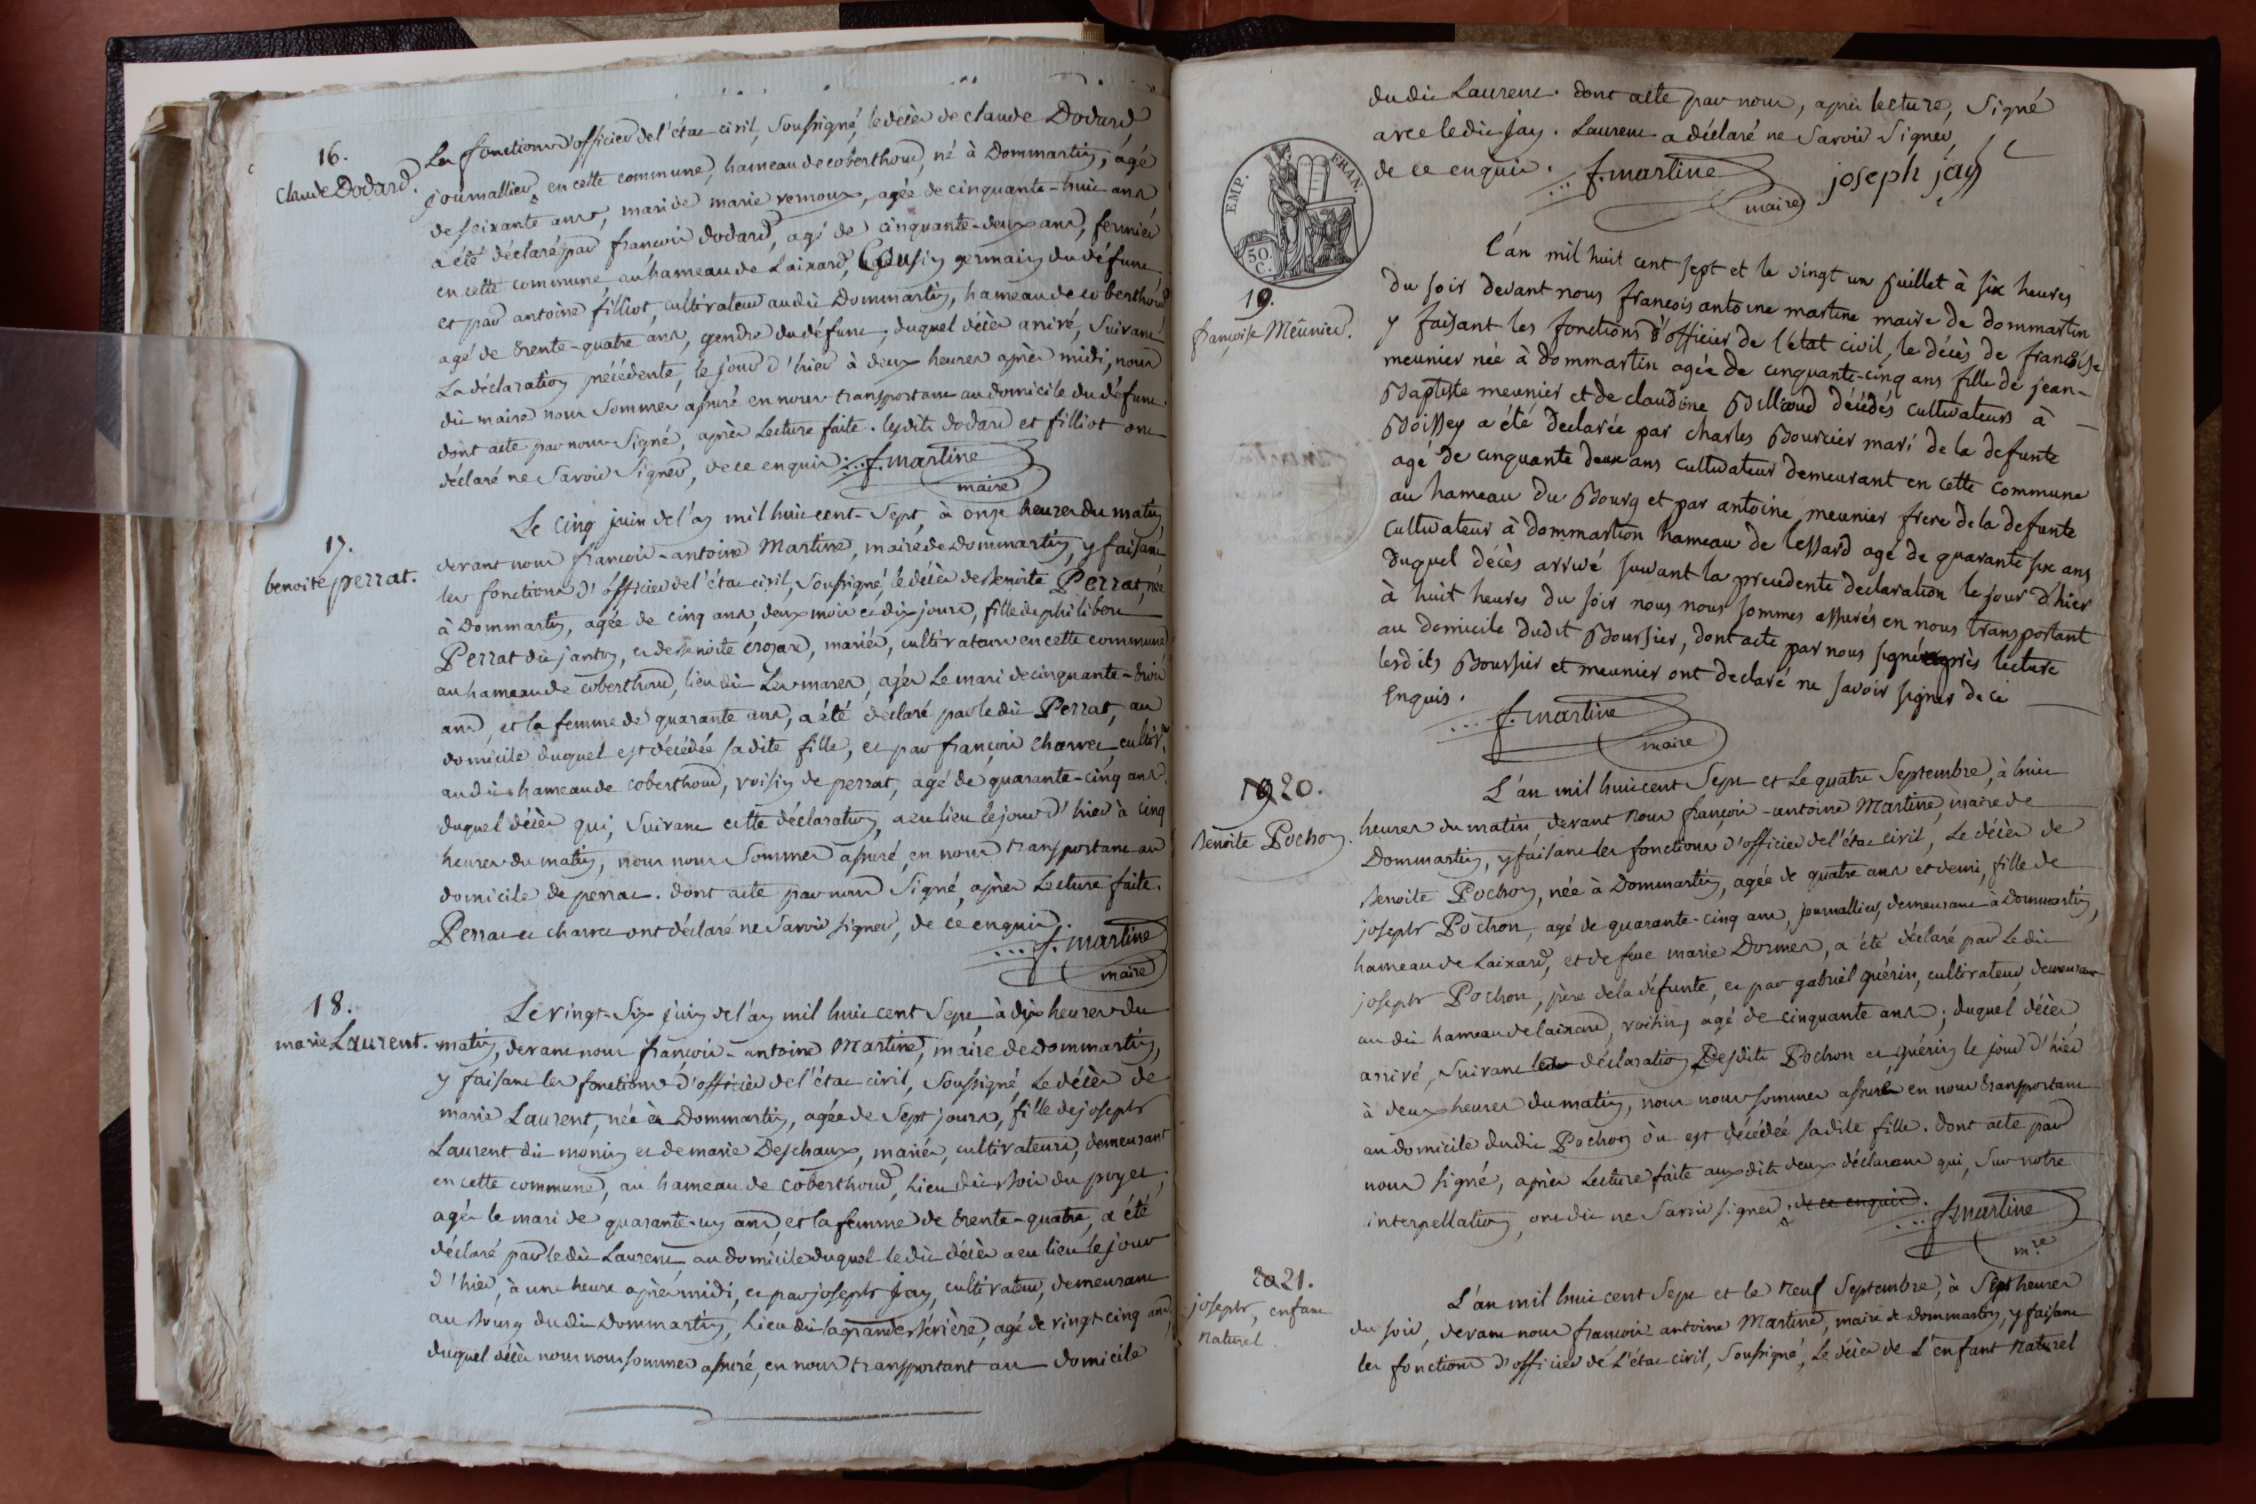 16.
Claude Dodard.
Les fonctions d'officier de l'état civil, soussigné, le décès de claude Dodard,
journallier, en cette commune, hameau de coberthoud, né à Dommartin, âgé
de soixante ans, mari de marie vernoux, agée de cinquante-huit ans
a été déclaré par françois dodard, agé de cinquante-deux ans, fermier
en cette commune, au hameau de Laixard, Cousin germain du défunt
et par antoine filliot, cultivateur audit Dommartin, hameau de coberthoud
agé de trente-quatre ans, gendre du défunt; duquel décès arrivé, suivant
La déclaration précédente, le jour d'hier à deux heures après midi, nous
dit maire nous sommes assuré en nous transportant au domicile du défunt.
dont acte par nous signé, après Lecture faite. lesdits dodard et filliot ont
déclaré ne savoir signer, de ce enquis. f. martine
maire
17.
benoite perrat.
Le cinq juin de l'an mil huit cent-sept, à onze heures du matin,
devant nous françois-antoine Martine, maire de Dommartin, y faisant
les fonctions d'officier de l'état civil, soussigné, le décès de benoite Perrat, née
à Dommartin, agée de cinq ans, deux mois et dix jours, fille de philibert
Perrat dit janton, et de benoite crozat, mariés, cultivateurs en cette commune
au hameau de coberthoud, lieu dit Les mares, agés Le mari de cinquante-trois
ans, et la femme de quarante ans, a été déclaré par le dit Perrat, au
domicile duquel est décédée sa dite fille, et par françois charvet, cultivr
au dit hameau de coberthoud, voisin de perrat, agé de quarante-cinq ans.
duquel décès qui, suivant cette déclaration, a eu lieu le jour d'hier à cinq
heures du matin, nous nous sommes assuré, en nous transportant au
domicile de perrat. dont acte par nous signé, après Lecture faite.
Perrat et charvet ont déclaré ne savoir signer, de ce enquis.
f. martine
maire
18.
marie Laurent.
Le vingt-six juin de l'an mil huit cent sept à dix heures du
matin, devant nous françois-antoine Martine, maire de Dommartin,
y faisant les fonctions d'officier de l'état civil, soussigné, Le décès de
marie Laurent, née à Dommartin, agée de sept jours, fille de joseph
Laurent dit monin et de marie Deschaux, mariés, cultivateurs, demeurant
en cette commune, au hameau de coberthoud, Lieu dit bois du puyet,
agés le mari de quarante-un ans, et la femme de trente-quatre, a été
déclaré par le dit Laurent, au domicile duquel le dit décès a eu lieu le jour
d'hier, à une heure après midi, et par joseph jay, cultivateur, demeurant
au bourg dudit Dommartin, Lieu dit la grande verière, agé de vingt-cinq ans,
duquel décès nous nous sommes assuré, en nous transportant au domicile
du dit Laurent. dont acte par nous, après lecture, signé
avec le dit jay. Laurent a déclaré ne savoir signer,
de ce enquis. f. martine
maire
joseph jay
EMP. FRAN.
50. C.
19.
françoise Meunier.
l'an mil huit cent sept et le vingt un juillet à six heures
du soir devant nous françois antoine martine maire de dommartin
y faisant les fonctions d'officier de l'état civil, le décès de françoise
meunier née à dommartin agée de cinquante-cinq ans fille de jean-
Baptiste meunier et de claudine Billioud décédés cultivateurs à
Boissey a été declarée par charles Bourcier mari de la defunte
agé de cinquante deux ans cultivateur demeurant en cette commune
au hameau du Bourg et par antoine meunier frere de la defunte
cultivateur à dommartion hameau de lessard agé de quarante six ans
duquel décès arrivé suivant la precedente declaration le jour d'hier
à huit heures du soir nous nous sommes assurés en nous transportant
au domicile dudit Boursier, dont acte par nous signé après lecture
lesdits Boursier et meunier ont declaré ne savoir signer de ce
Enquis.
f. martine
maire
19 20.
benoite Pochon.
L'an mil huit cent sept et Le quatre septembre, à huit
heures du matin, devant nous françois-antoine Martine, maire de
Dommartin, y faisant les fonctions d'officier de l'état civil, Le décès de
benoite Pochon, née à Dommartin, agée de quatre ans et demi, fille de
joseph Pochon, agé de quarante-cinq ans, journallier, demeurant à Dommartin,
hameau de Laixard, et de feue marie Dormes, a été déclaré par Le dit
joseph Pochon, père de la défunte, et par gabriël guérin, cultivateur, demeurant
au dit hameau de laixard, voisin, agé de cinquante ans; duquel décès
arrivé, suivant la déclaration Desdits Pochon et guérin le jour d'hier
à deux heures du matin, nous nous sommes assuré en nous transportant
au domicile dudit Pochon où est décédée sa dite fille. dont acte par
nous signé, après Lecture faite aux dits deux déclarans qui, sur notre
interpellation, ont dit ne savoir signer, de ce enquis. f. martine
mre
20 21.
joseph, enfant
naturel.
L'an mil huit cent sept et le neuf septembre, à sept heures
du soir, devant nous françois antoine Martine, maire de dommartin, y faisant
les fonctions d'officier de L'état civil, soussigné, Le décès de L'enfant naturel